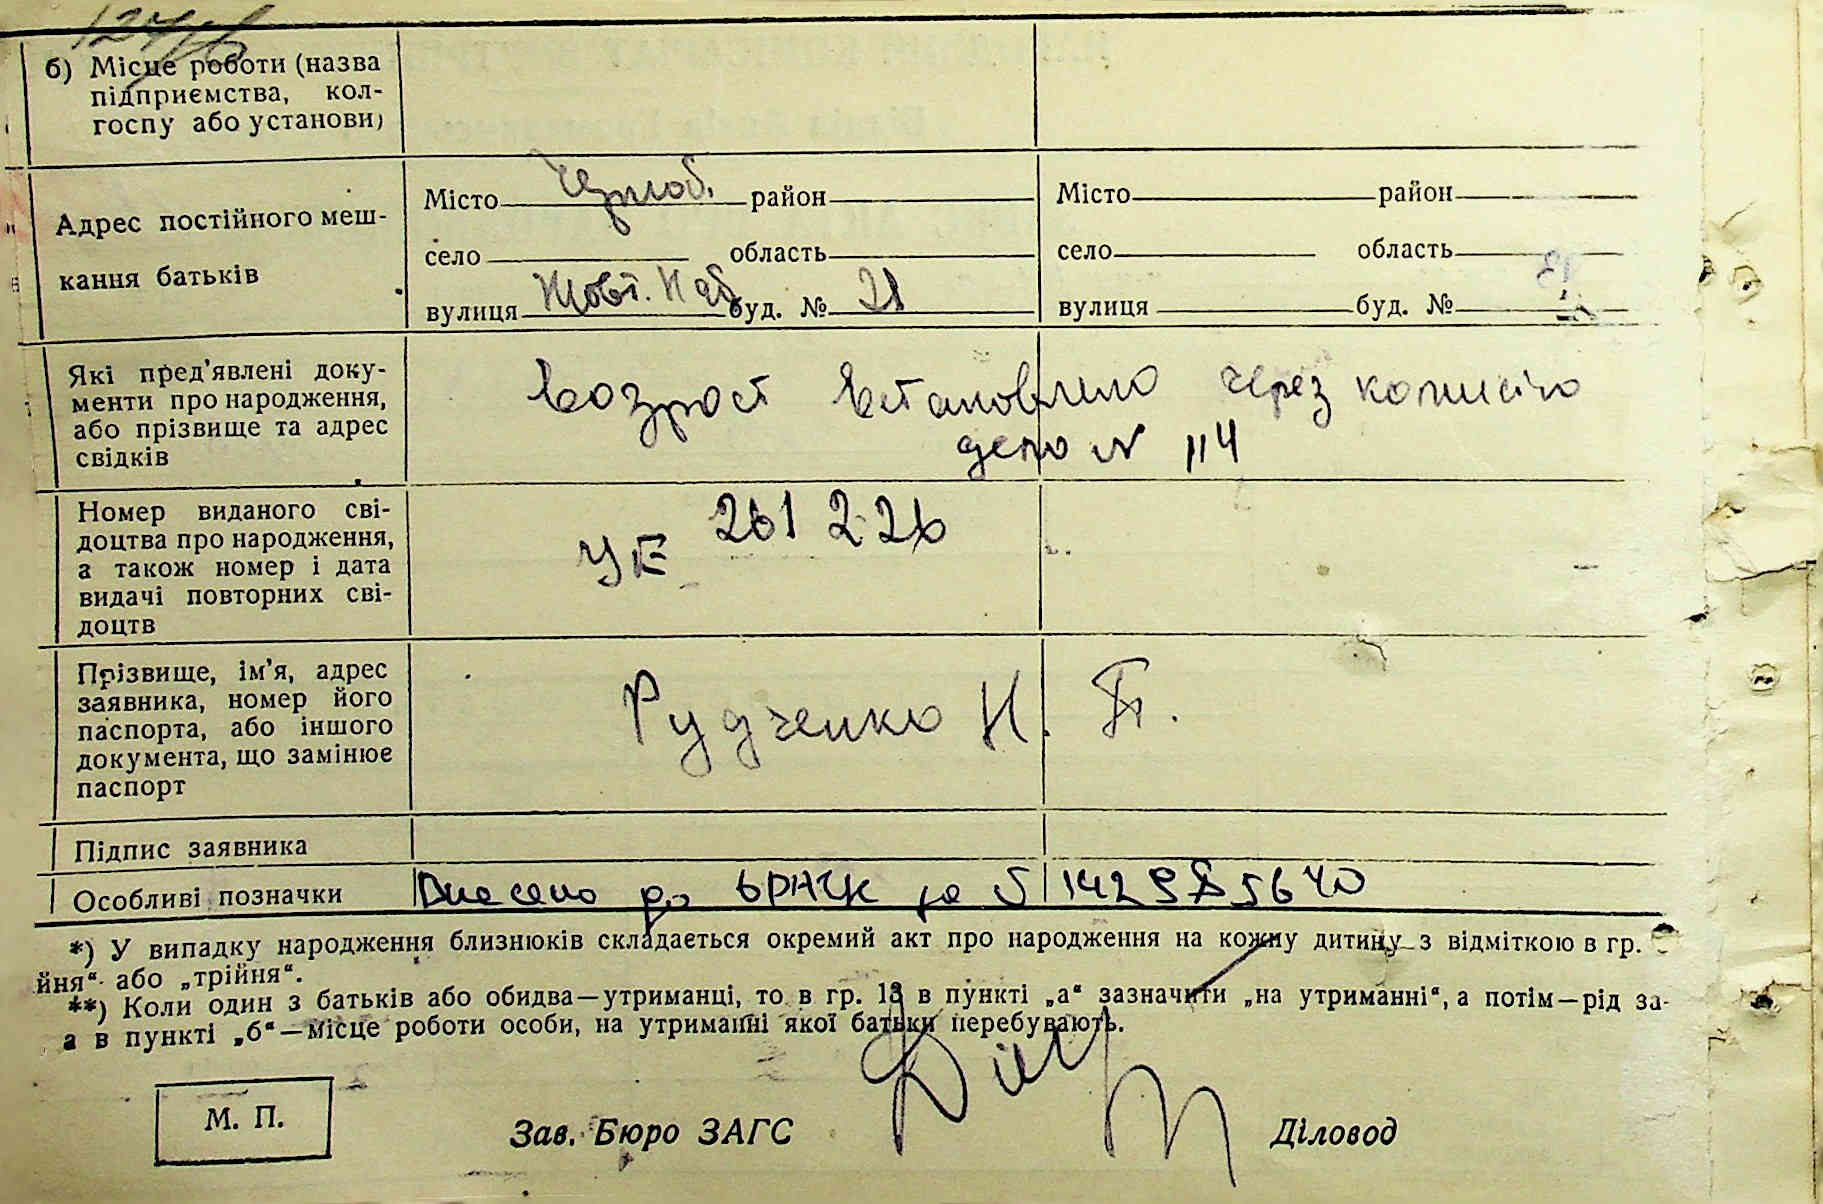 б) Місце роботи (назва
підприємства, кол-
госпу або установи)
Адрес постійного меш-
кання батьків
Місто Чорноб. район
село область
вулиця Жовт. Наб буд. № 21
Місто район
село область
вулиця буд. №
Які пред'явлені доку-
менти про народження,
або прізвище та адрес
свідків
возраст встановлено через комисію
дело № 114
Номер виданого сві-
доцтва про народження,
а також номер і дата
видачі повторних сві-
доцтв
УЕ 261226
Прізвище, ім'я, адрес
заявника, номер його
паспорта, або іншого
документа, що замінює
паспорт
Рудченко Н. П.
Підпис заявника
Особливі позначки
Внесено до ДРАЦС за
*) У випадку народження близнюків складається окремий акт про народження на кожну дитину з відміткою в гр.
йня“ або „трійня“.
**) Коли один з батьків або обидва—утриманці, то в гр. 13 в пункті „а“ зазначити „на утриманні“, а потім—рід за-
а в пункті „б“—місце роботи особи, на утриманні якої батьки перебувають.
М. П.
Зав. Бюро ЗАГС
Діловод